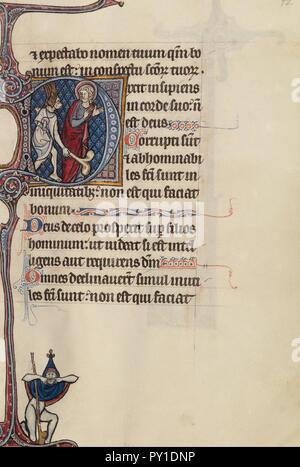 & expectabo nomen tuum qm̄ bo
num est: in conspectu scōꝝ tuoꝝ.
Dixit insipiens
in corde suo: n̄
est deus
Corrupti sūt
& abhominabi
les sc̄i sunt in
iniquitatibꝫ: non est qui faciat
bonum.
Deus de celo prospexit sup filios
hominum: ut uideat si est intel
ligens aut requirens dm̄
Omnes declinauerūt simul inuti
les sc̄i sunt: non est qui faciat
alamy
PY1DNP